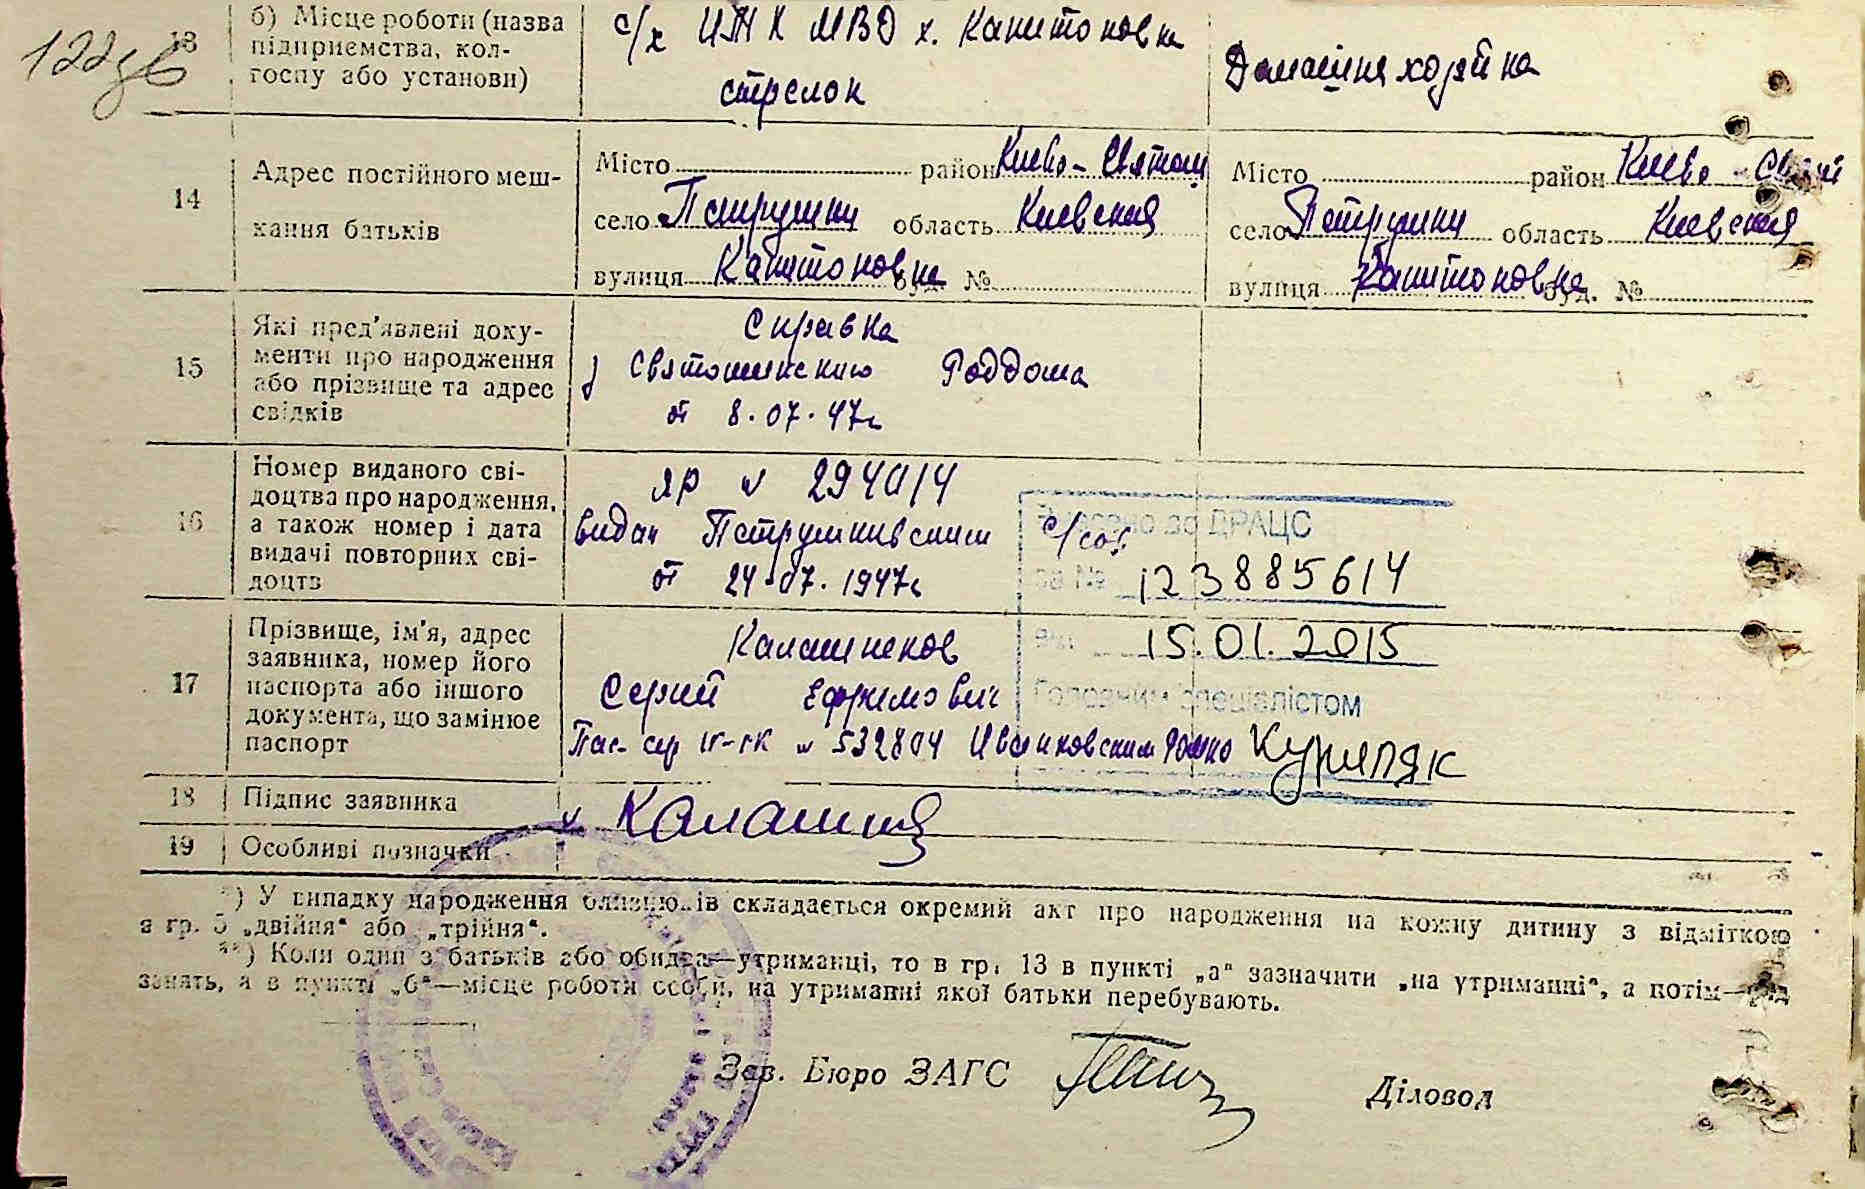 122зв
13 б) Місце роботи (назва підприємства, колгоспу або установи)
с/х ИТК МВД х. Капитоновка
стрелок
Домашня хозяйка
14 Адрес постійного мешкання батьків
Місто район Киево-Святош
село Петрушки область Киевская
вулиця Капитоновка буд. №
Місто район Киево-Свят
село Петрушки область Киевская
вулиця Капитоновка буд. №
15 Які пред'явлені документи про народження або прізвище та адрес свідків
Справка
Святошинского Роддома
от 8.07.47г
16 Номер виданого свідоцтва про народження, а також номер і дата видачі повторних свідоцтв
ЯР № 294014
видан Петрушкивским с/сов.
от 24.07.1947г
Внесено до ДРАЦС
за № 123885614
15.01.2015
Головним спеціалістом
Куриляк
17 Прізвище, ім'я, адрес заявника, номер його паспорта або іншого документа, що замінює паспорт
Калашнеков
Сергий Ефримович
Пас. сер № 532804 Иванковским
18 Підпис заявника
19 Особливі позначки
*) У випадку народження близнюків складається окремий акт про народження на кожну дитину з відміткою
в гр. 5 „двійня“ або „трійня“.
**) Коли один з батьків або обидва—утриманці, то в гр. 13 в пункті „а“ зазначити „на утриманні“, а потім—рід
занять, а в пункті „б“—місце роботи особи, на утриманні якої батьки перебувають.
Зав. Бюро ЗАГС
Діловод